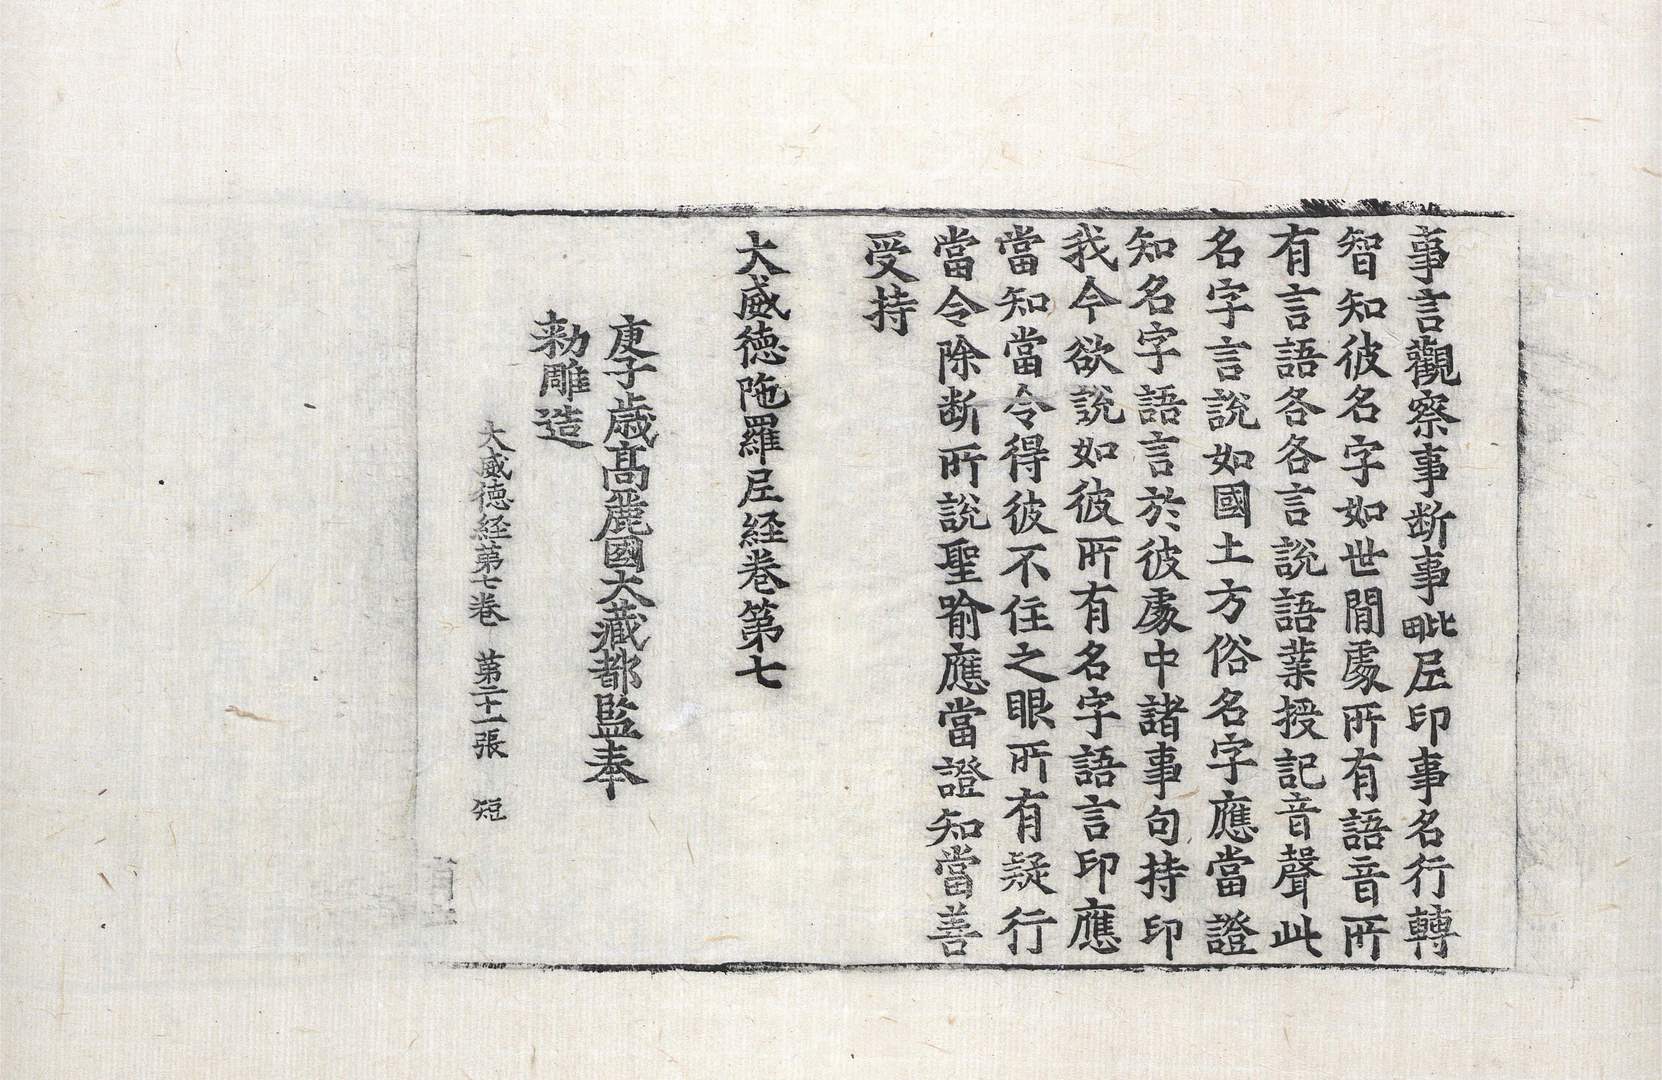 事言觀察事断事毗𡰱印事名行轉
智知彼名字如世閒處所有語音所
有言語各各言說語業授記音聲此
名字言說如國土方俗名字應當證
知名字語言於彼處中諸事句持印
我今欲說如彼所有名字語言印應
當知當令得彼不住之眼所有疑行
當令除断所說聖喻應當證知當善
受持
大威徳陁羅𡰱経卷第七
庚子歳髙麗國大藏都監奉
勑雕造
大威徳経第七卷　第二十一張　短